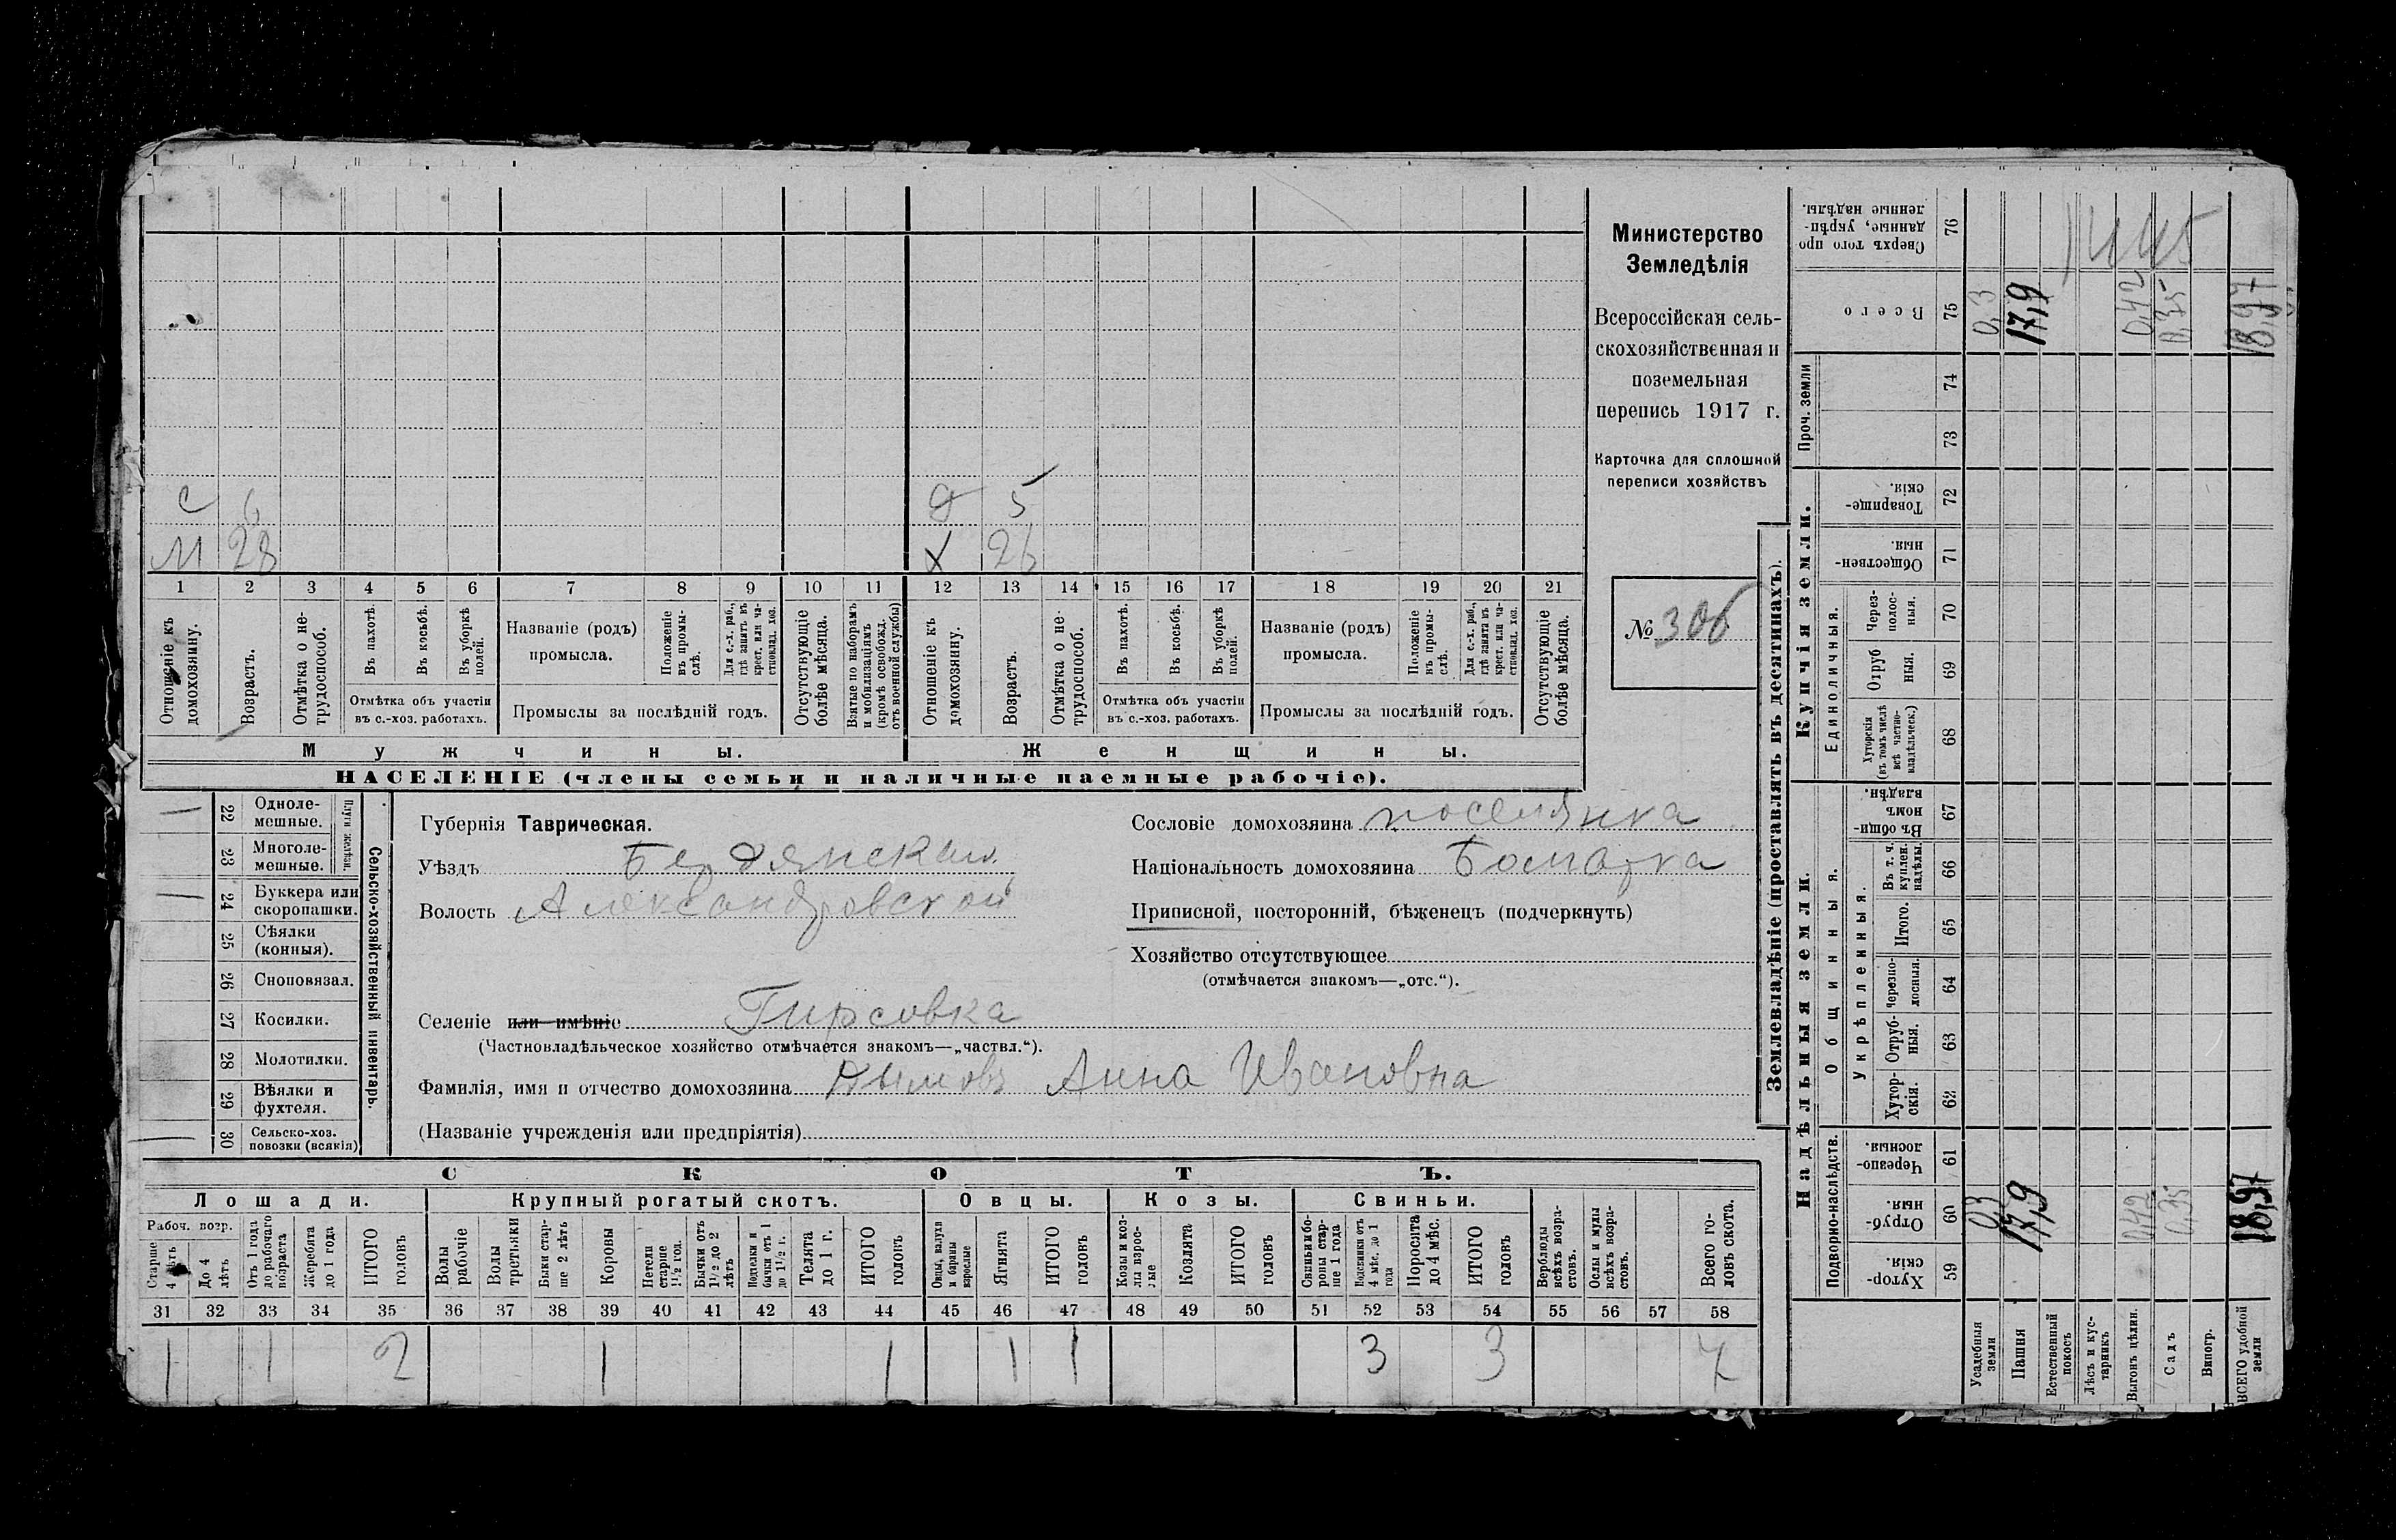 с 6 д 5
м 28 х 26
1 2 3 4 5 6 7 8 9 10 11 12 13 14 15 16 17 18 19 20 21
Отношеніе къ домохозяину.
Возрастъ.
Отмѣтка о не-трудоспособ.
Въ пахотѣ.
Въ косьбѣ.
Въ уборкѣ полей.
Отмѣтка объ участіи
въ с.-хоз. работахъ.
Названіе (родъ)
промысла.
Положеніе въ промы-слѣ.
Для с.-х. раб., гдѣ занятъ въ крест. или ча-стновлад. хоз.
Промыслы за послѣдній годъ.
Отсутствующіе болѣе мѣсяца.
Взятые по наборамъ и мобилизаціямъ (кромѣ освобожд. отъ военной службы)
Отношеніе къ домохозяину.
Возрастъ.
Отмѣтка о не-трудоспособ.
Въ пахотѣ.
Въ косьбѣ.
Въ уборкѣ полей.
Отмѣтка объ участіи
въ с.-хоз. работахъ.
Названіе (родъ)
промысла.
Положеніе въ промы-слѣ.
Для с.-х. раб., гдѣ занята въ крест. или ча-стновлад. хоз.
Промыслы за послѣдній годъ.
Отсутствующіе болѣе мѣсяца.
Мужчины.
Женщины.
НАСЕЛЕНІЕ (члены семьи и наличные наемные рабочіе).
Министерство
Земледѣлія
Всероссійская сель-
скохозяйственная и
поземельная
перепись 1917 г.
Карточка для сплошной
переписи хозяйствъ
№ 306
Сельско-хозяйственный инвентарь.
Плуги желѣзн.
22 Одноле-
мешные.
23 Многоле-
мешные.
24 Буккера или
скоропашки.
25 Сѣялки
(конныя).
26 Сноповязал.
27 Косилки.
28 Молотилки.
29 Вѣялки и
фухтеля.
30 Сельско-хоз.
повозки (всякія)
Губернія Таврическая.
Уѣздъ Бердянскій
Волость Александровской
Селеніе или имѣніе Гирсовка
(Частновладѣльческое хозяйство отмѣчается знакомъ—„частвл.“).
Фамилія, имя и отчество домохозяина Дымова Анна Ивановна
(Названіе учрежденія или предпріятія)
Сословіе домохозяина поселянка
Національность домохозяина Болгарка
Приписной, посторонній, бѣженецъ (подчеркнуть)
Хозяйство отсутствующее
(отмѣчается знакомъ—„отс.“).
СКОТЪ.
Лошади. Крупный рогатый скотъ. Овцы. Козы. Свиньи.
Рабоч. возр.
Старше 4 лѣтъ
До 4 лѣтъ
Отъ 1 года до рабочаго возраста
Жеребята до 1 года
ИТОГО головъ
Волы рабочіе
Волы третьяки
Быки стар-ше 2 лѣтъ
Коровы
Нетели старше 1½ год.
Бычки отъ 1½ до 2 лѣтъ
Подтелки и бычки отъ 1 до 1½ г.
Телята до 1 г.
ИТОГО головъ
Овцы, валухи и бараны взрослые
Ягнята
ИТОГО головъ
Козы и коз-лы взрос-лые
Козлята
ИТОГО головъ
Свиньи и бо-ровы стар-ше 1 года
Подсвинки отъ 4 мѣс. до 1 года
Поросята до 4 мѣс.
ИТОГО головъ
Верблюды всѣхъ возра-стовъ.
Ослы и мулы всѣхъ возра-стовъ.
Всего го-ловъ скота.
31 32 33 34 35 36 37 38 39 40 41 42 43 44 45 46 47 48 49 50 51 52 53 54 55 56 57 58
1 1 2 1 1 1 1 3 3 7
Землевладѣніе (проставлять въ десятинахъ).
Надѣльныя земли.
Купчія земли.
Проч. земли
Подворно-наслѣдств.
Общинныя.
Укрѣпленныя.
Единоличныя.
Хутор-скія. 59
Отруб-ныя. 60
Черезпо-лосныя. 61
Хутор-скія. 62
Отруб-ныя. 63
Черезпо-лосныя. 64
Итого. 65
Въ т. ч. куплен. надѣлы. 66
Въ общи-номъ владѣн. 67
Хуторскія (въ томъ числѣ всѣ частно-владѣльческ.) 68
Отруб ныя. 69
Через-полос-ныя. 70
Обществен-ныя. 71
Товарище-скія. 72
73
74
Всего 75
Сверхъ того про данные, укрѣп-ленные надѣлы. 76
Усадебныя земли 0,3 0,3
Пашня 17,9 17,9
Естественный покосъ
Лѣсъ и кус-тарникъ
Выгонъ цѣлин. 0,42 0,42
Садъ 0,35 0,35
Виногр.
ВСЕГО удобной земли 18,97 18,97